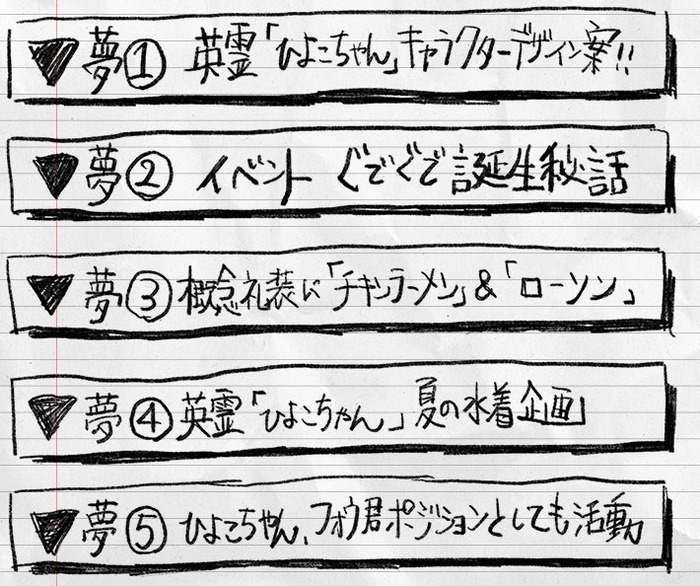 ▼夢① 英霊「ひよこちゃん」キャラクターデザイン案!!
▼夢② イベント ぐでぐで誕生秘話
▼夢③ 概念礼装に「チキンラーメン」&「ローソン」
▼夢④ 英霊「ひよこちゃん」夏の水着企画
▼夢⑤ ひよこちゃん、フォウ君ポジションとしても活動